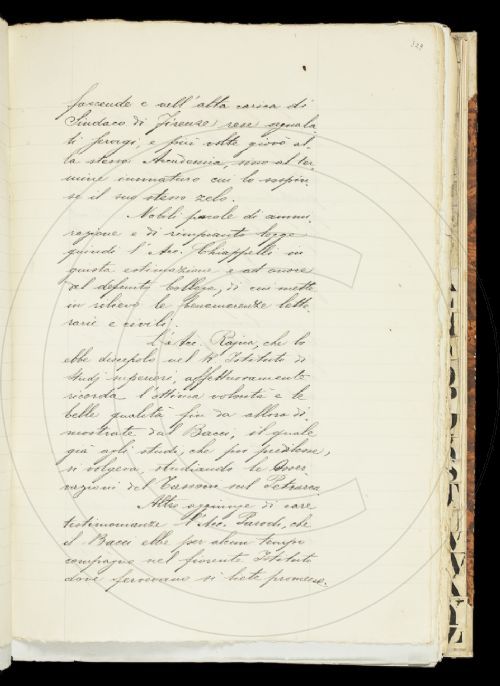 329
faccende e nell'alta carica di
Sindaco di Firenze, rese segnala
ti servigi, e più volte giovò al-
la stessa Accademia, sino al ter
mine immaturo cui lo sospin-
se il suo stesso zelo.
Nobili parole di ammi
razione e di rimpianto legge
quindi l'Acc. Chiappelli in
questa estimazione e ad onore
del defunto Collega, di cui mette
in rilievo le benemerenze lette
rarie e civili.
L'Acc. Rajna, che lo
ebbe discepolo nel R. Istituto di
Studj superiori, affettuosamente
ricorda l'ottima volontà e le
belle qualità fin da allora di
mostrate dal Bacci, il quale
già agli studi, che poi predilesse,
si volgeva, studiando le Osser
vazioni del Tassoni sul Petrarca.
Altre aggiunge di care
testimonianze l'Acc. Parodi, che
il Bacci ebbe per alcun tempo
compagno nel fiorente Istituto
dove fervevano sì liete promesse.